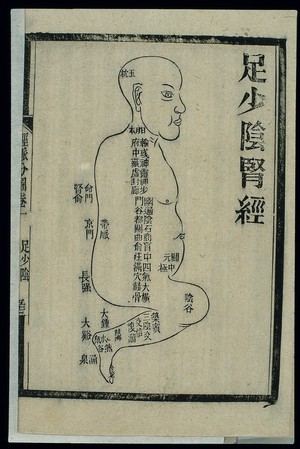 足少陰腎經
玉枕
俞府
彧中
神藏
靈墟
神封
步廊
幽門
通谷
陰都
石關
商曲
肓俞
中柱
四滿
氣穴
大赫
橫骨
石關
關元
中極
命門
腎俞
京門
帶脈
長強
陰谷
築賓
三陰交
交信
復溜
大鍾
照海
水泉
然谷
大谿
涌泉
經脉分圖卷一
足少陰